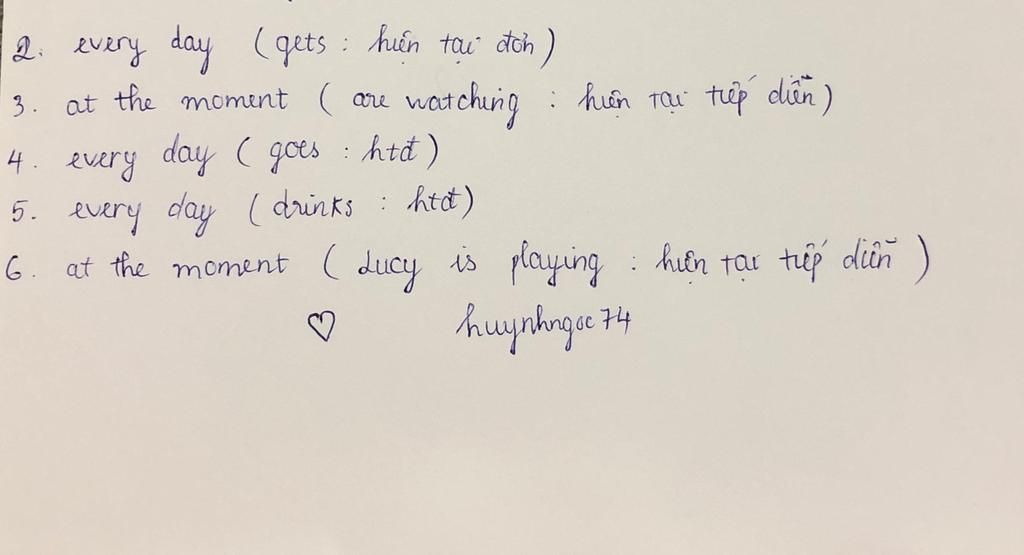 2. every day (gets : hiện tại đơn)
3. at the moment (are watching : hiện tại tiếp diễn)
4. every day (goes : htđ)
5. every day (drinks : htđ)
6. at the moment (Lucy is playing : hiện tại tiếp diễn)
♡ huynhngoc74